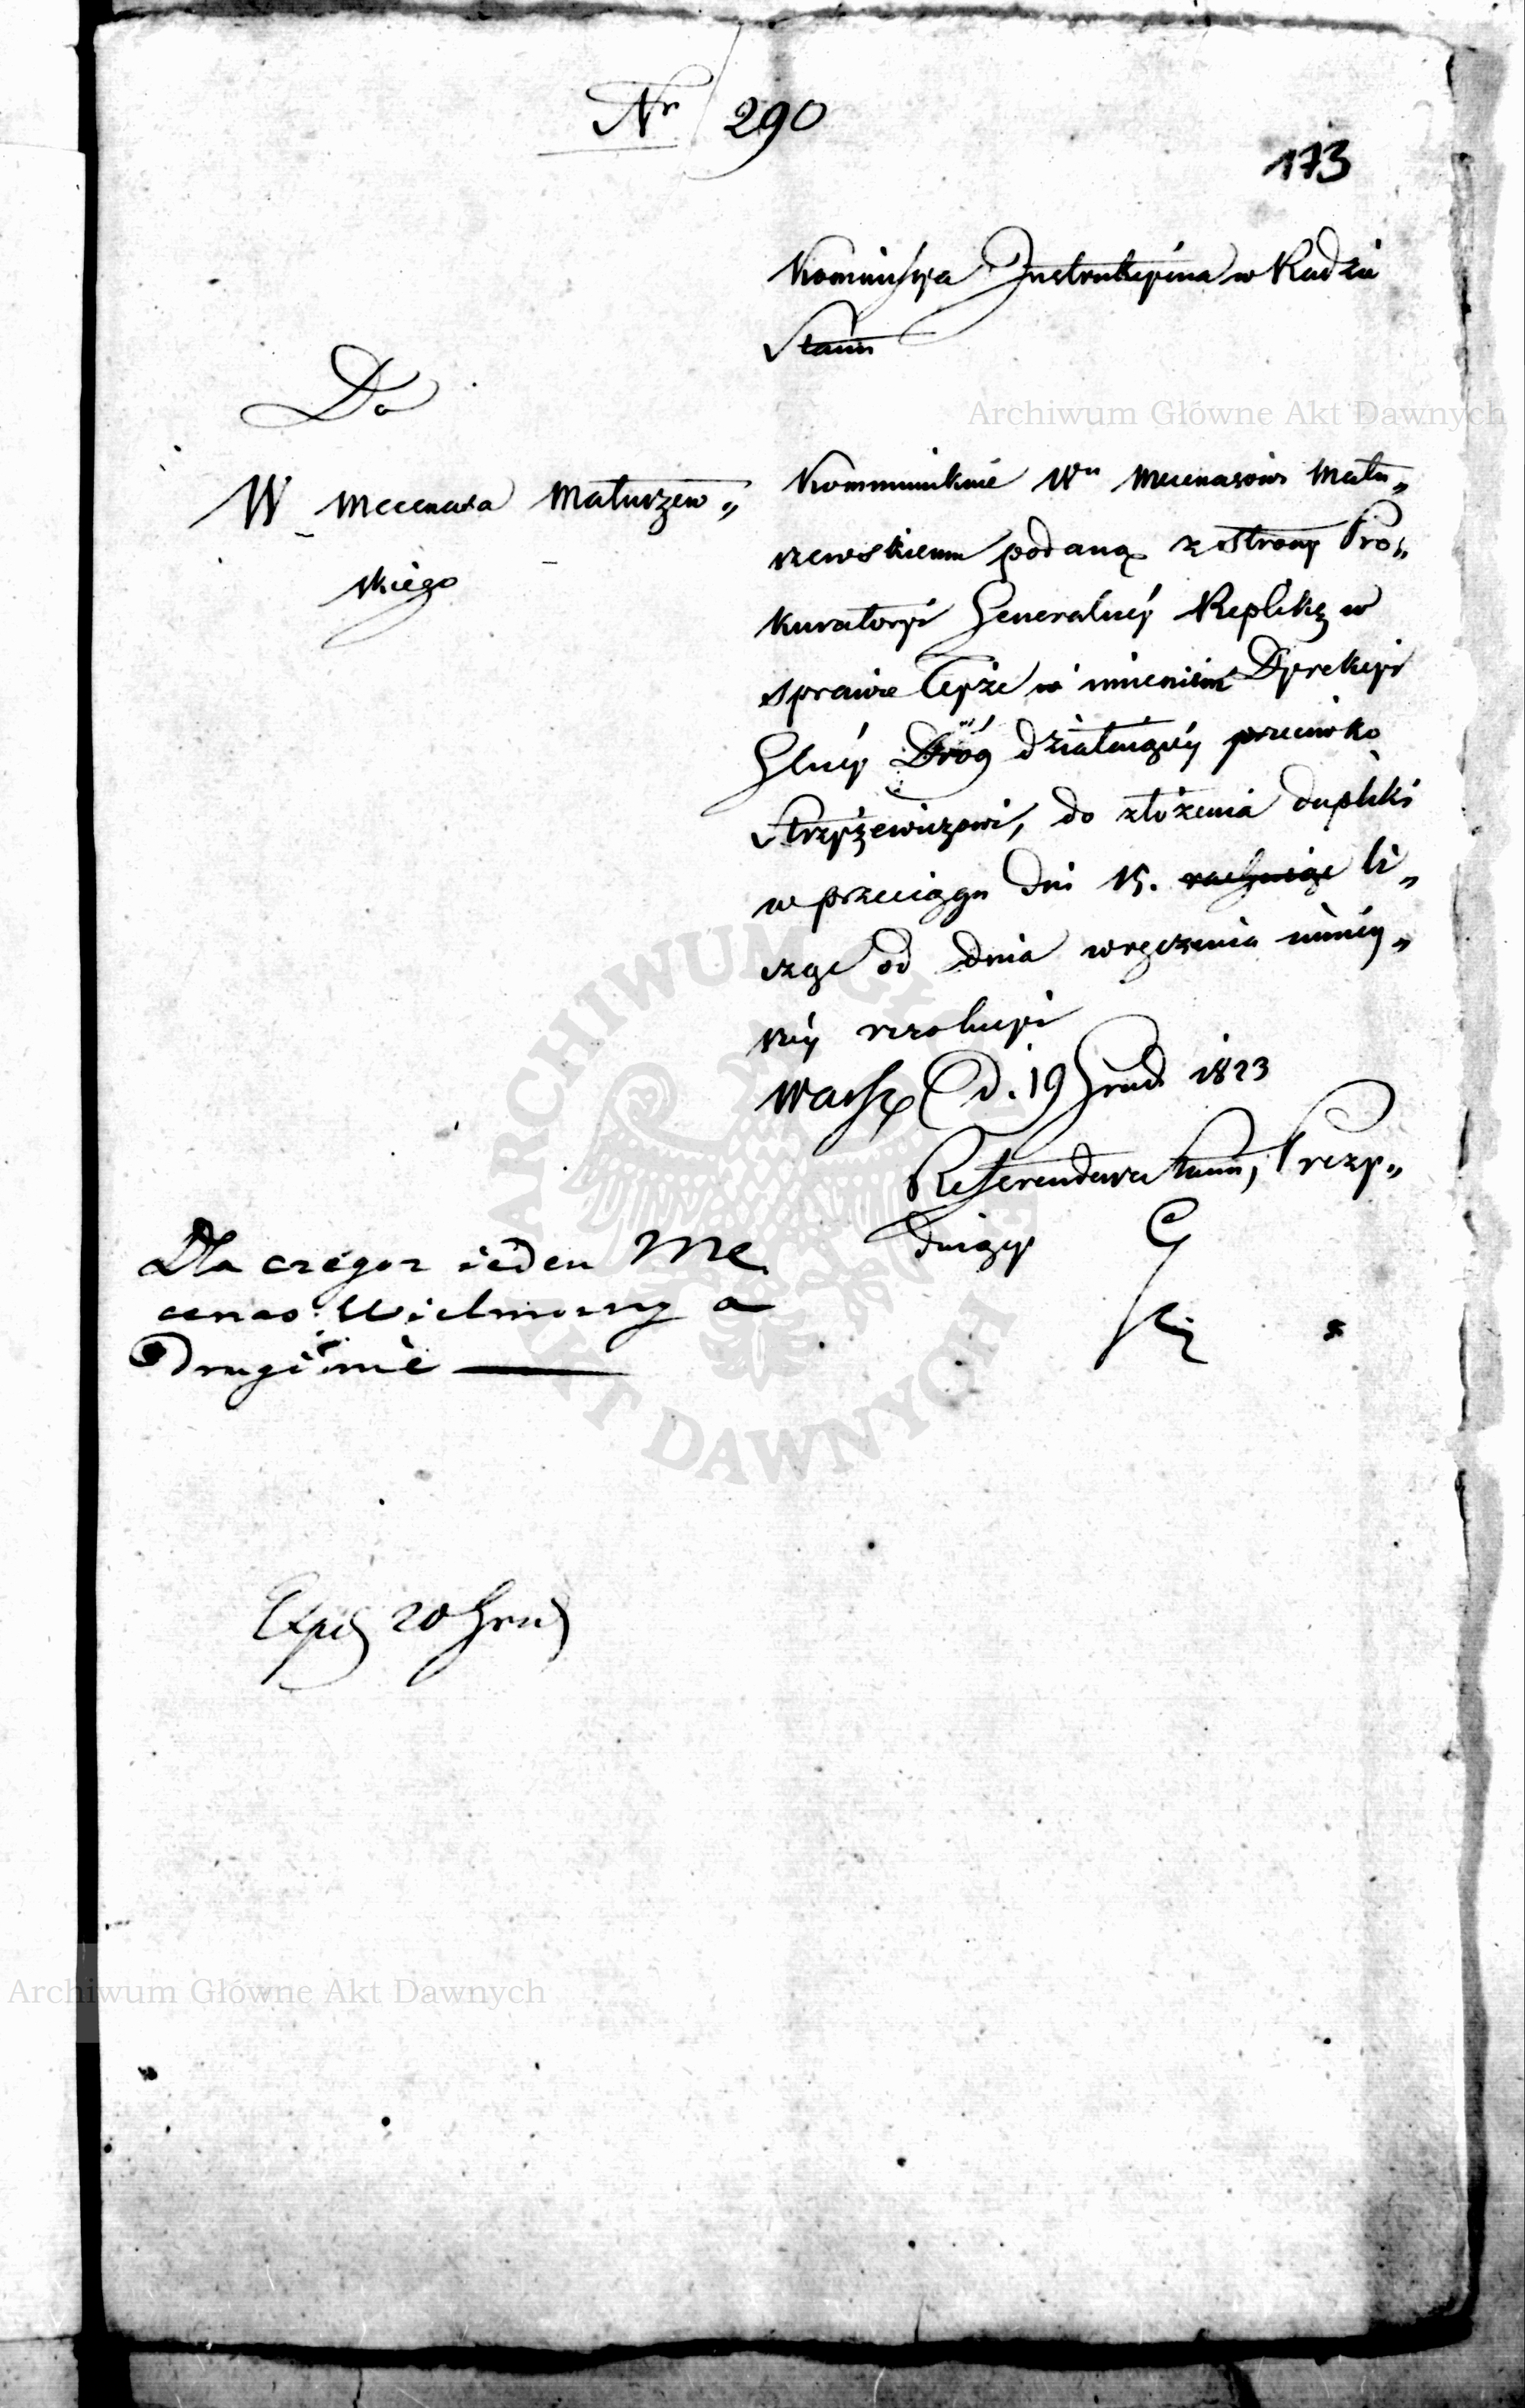 Nr 290
173
Kommissya Instrukcyina w Radzie
Stanu
Do
W Mecenasa Matuszew„
skiego
Kommunikuie Wu Mecenasowi Matu„
szewskiemu podaną z strony Pro„
kuratoryi Generalnéy Replikę w
sprawie teyże w imieniem Dyrekcyi
Glnéy Dróg działaiącéy przeciwko
Strzyżewiczowi, do złożenia dupliki
w przeciągu dni 15. rachuiąc li„
cząc od dnia wręczenia niniey„
széy rezolucyi
Warsz d. 19 Grud. 1823
Referendarz Stanu, Prezy„
duiący
Dla czégoz ieden Me
cenas Wielmozny a
drugi nié
Exped 20 Grud
Archiwum Główne Akt Dawnych
ARCHIWUM GŁÓWNE AKT DAWNYCH
Archiwum Główne Akt Dawnych